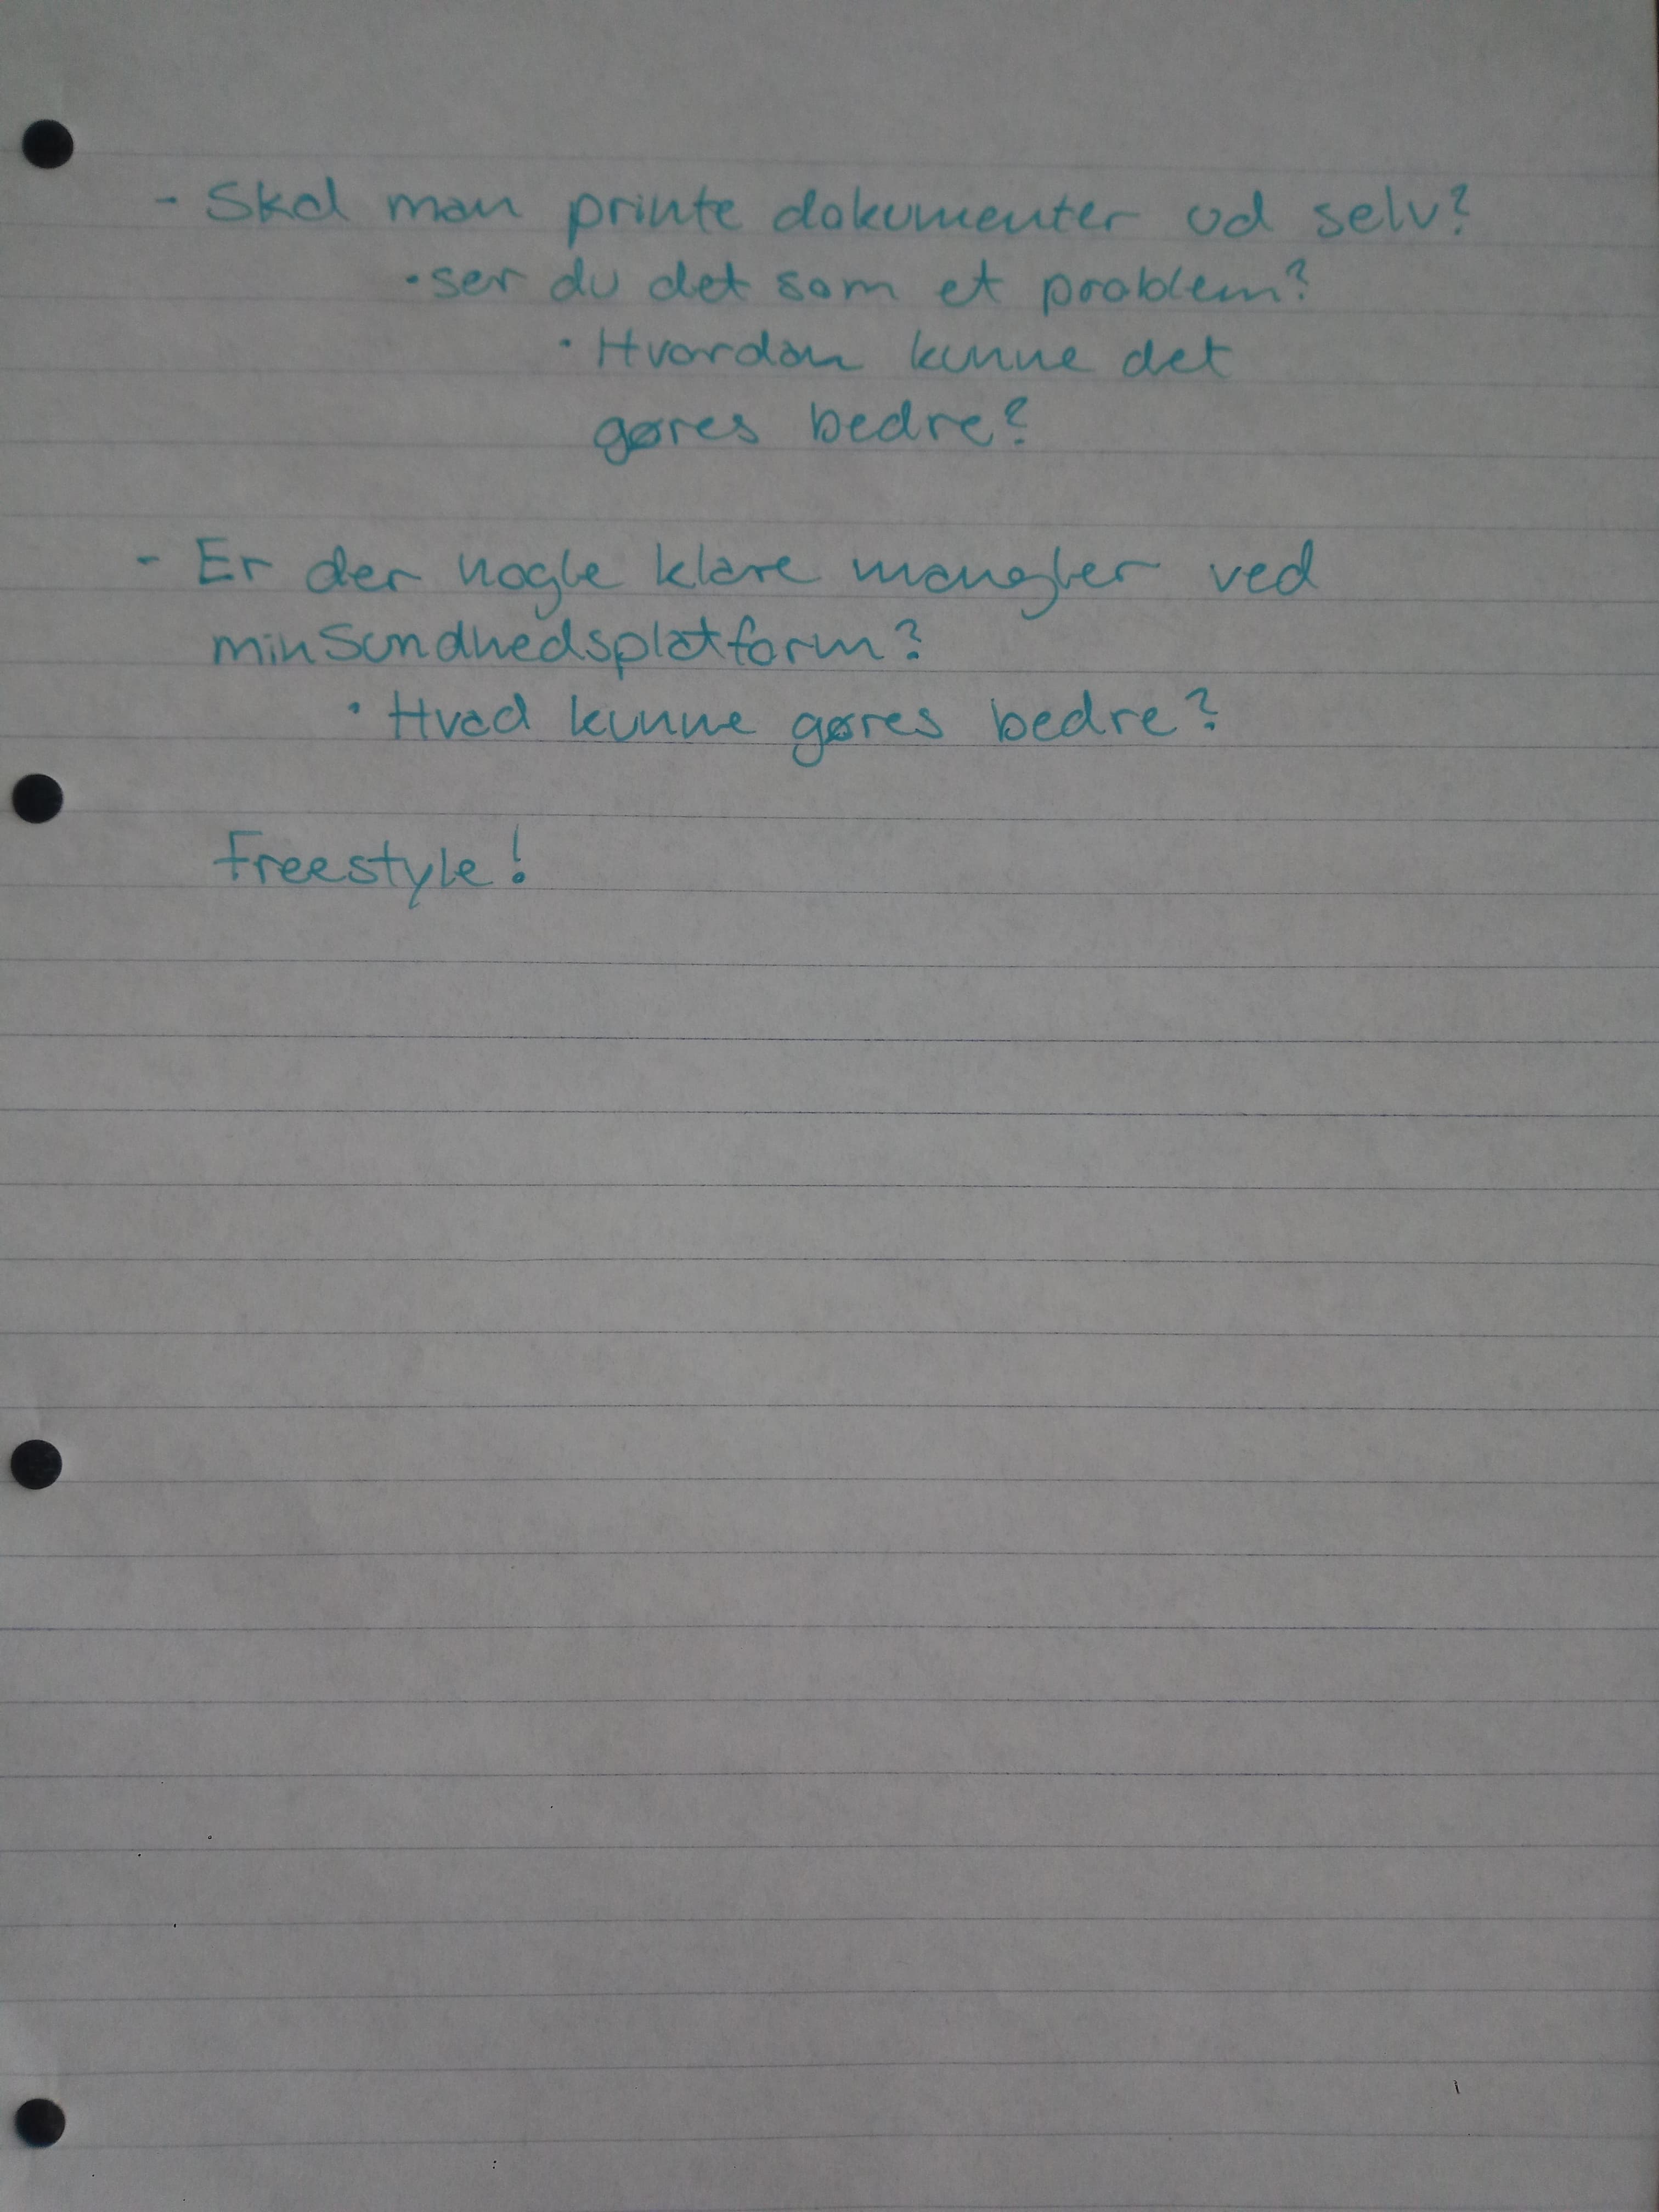 - Skal man printe dokumenter ud selv?
• ser du det som et problem?
• Hvordan kunne det
gøres bedre?
- Er der nogle klare mangler ved
minSundhedsplatform?
• Hvad kunne gøres bedre?
Freestyle!